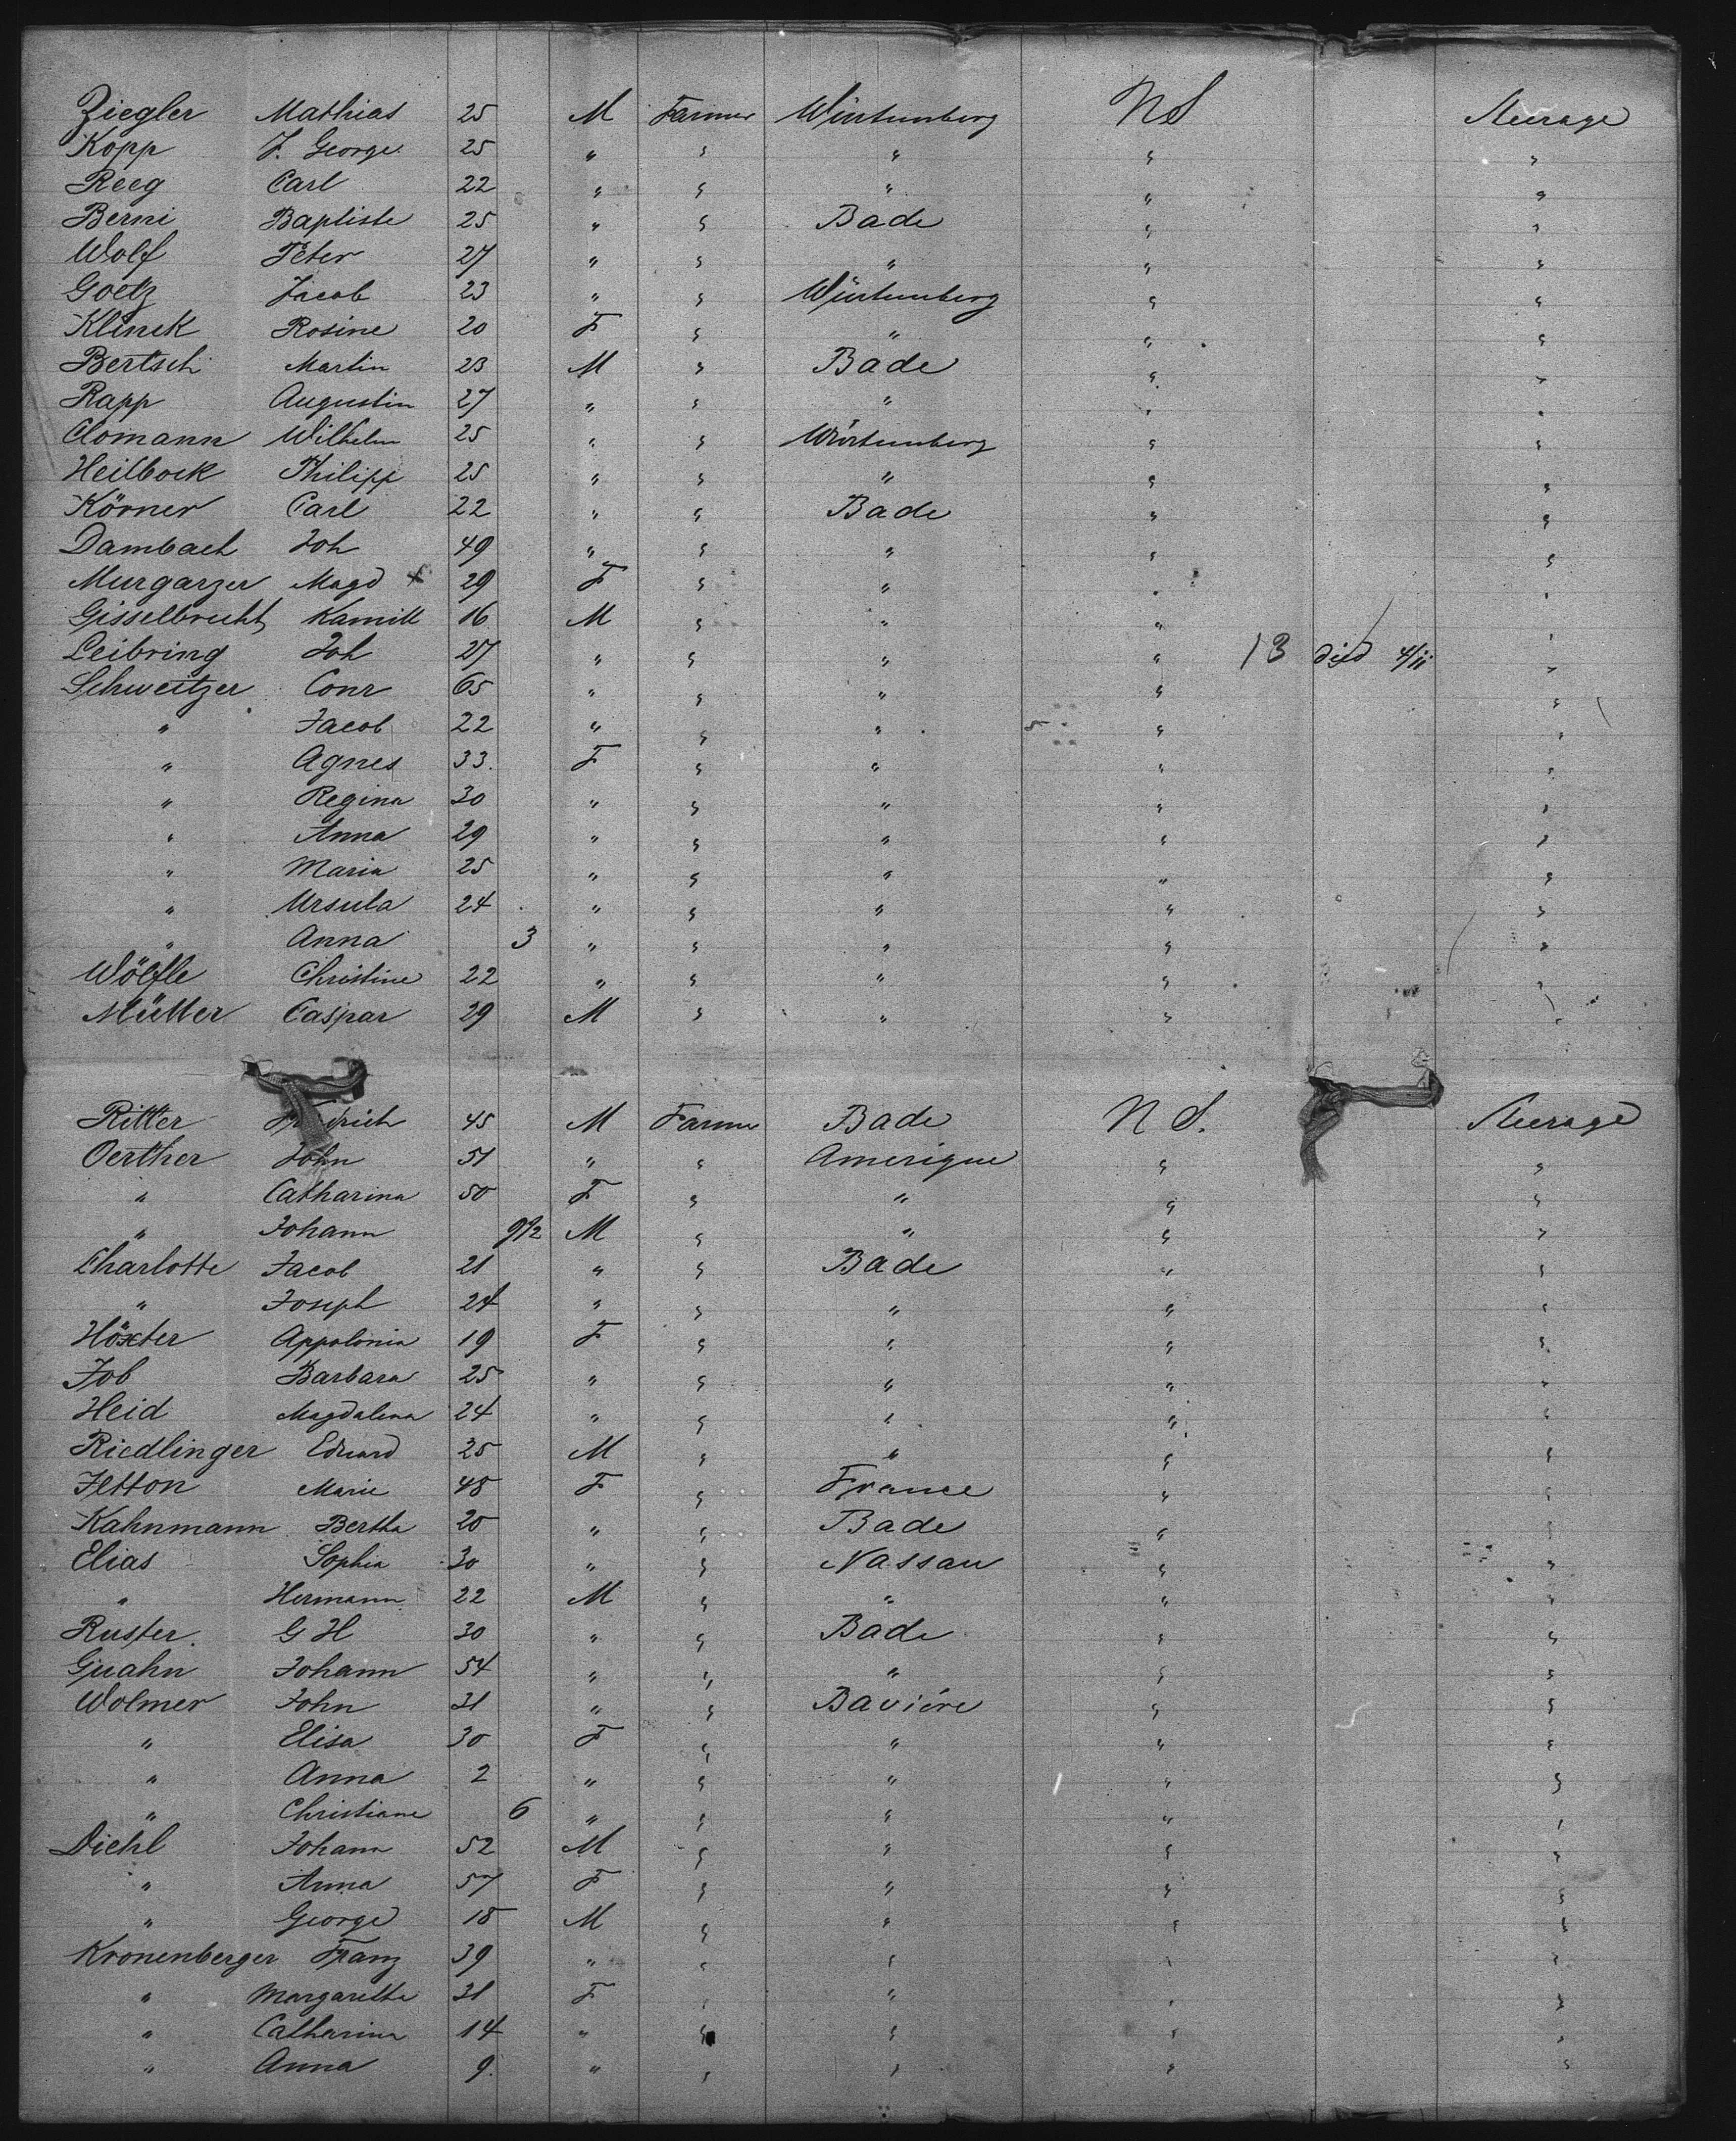 Ziegler Mathias 25 M Farmer Würtemberg N S Steerage
Kopp J. George 25 " " " " "
Reeg Carl 22 " " " " "
Berni Baptiste 25 " " Bade " "
Wolf Peter 27 " " " " "
Goetz Jacob 23 " " Würtemberg " "
Klinck Rosine 20 F " " " "
Bertsch Martin 23 M " Bade " "
Rapp Augustin 27 " " " " "
Clomann Wilhelm 25 " " Würtemberg " "
Heilbock Philipp 25 " " " " "
Körner Carl 22 " " Bade " "
Dambach Joh 49 " " " " "
Murgarzer Magd x 29 F " " " "
Gisselbrecht Kamill 16 M " " " "
Leibring Joh 27 " " " " 13 died 4/ii "
Schweitzer Conr 65 " " " " "
" Jacob 22 " " " " "
" Agnes 33. F " " " "
" Regina 30 " " " " "
" Anna 29 " " " " "
" Maria 25 " " " " "
" Ursula 24 " " " " "
" Anna 3 " " " " "
Wölfle Christine 22 " " " " "
Müller Caspar 29 M " " " "
Ritter Friedrich 45 M Farmer Bade N S. Steerage
Oerther John 51 " " Amerique " "
" Catharina 50 F " " " "
" Johann 9½ M " " " "
Charlotte Jacob 21 " " Bade " "
" Joseph 24 " " " " "
Höxter Appolonia 19 F " " " "
Job Barbara 25 " " " " "
Heid Magdalena 24 " " " " "
Riedlinger Eduard 25 M " " " "
Jetton Marie 48 F " France " "
Kahnmann Bertha 20 " " Bade " "
Elias Sophia 30 " " Nassau " "
" Hermann 22 M " " " "
Ruster. G H 30 " " Bade " "
Guahn Johann 54 " " " " "
Wolmer John 31 " " Baviére " "
" Elisa 30 F " " " "
" Anna 2 " " " " "
" Christiane 6 " " " " "
Diehl Johann 52 M " " " "
" Anna 57 F " " " "
" George 18 M " " " "
Kronenberger Franz 39 " " " " "
" Margarethe 31 F " " " "
" Catharina 14 " " " " "
" Anna 9. " " " " "